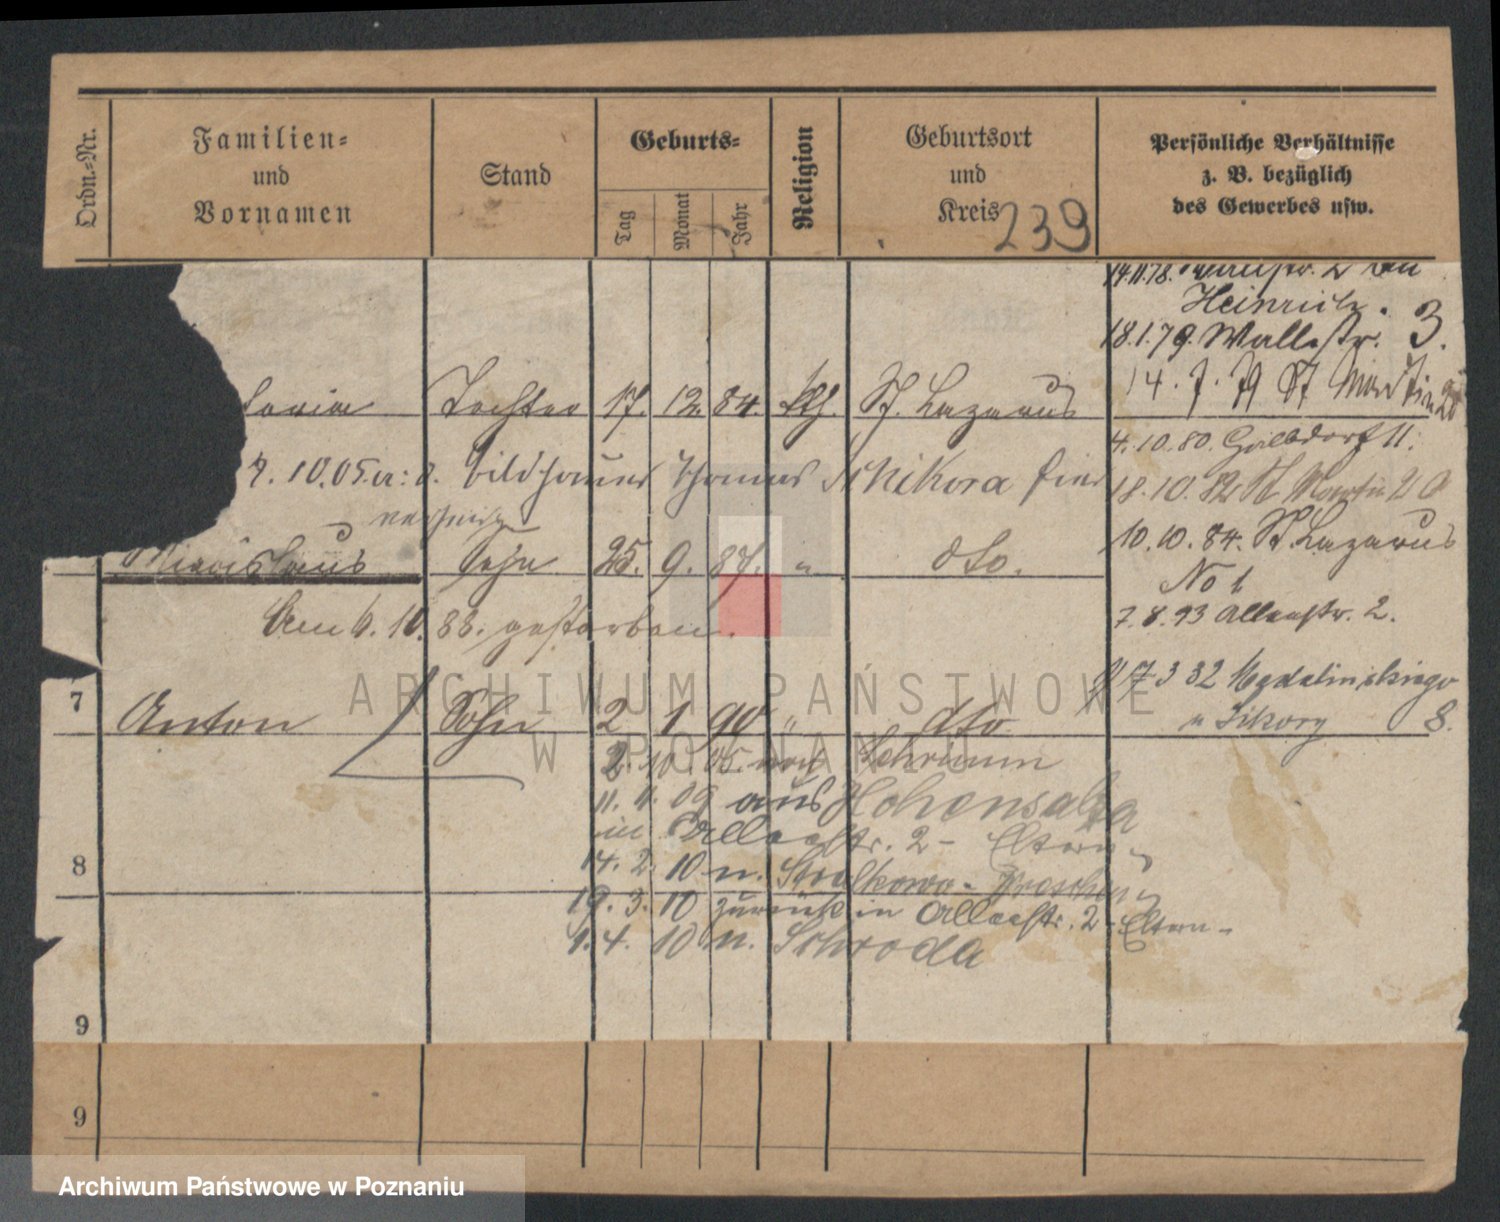 Ordn.-Nr.
Familien-
und
Vornamen
Stand
Geburts-
Tag
Monat
Jahr
Religion
Geburtsort
und
Kreis
239
Persönliche Verhältnisse
z. B. bezüglich
des Gewerbes usw.
14.11.78.
Heinrich.
18.1.79. Wallstr. 3.
14. 7. 79 St Martin
Tochter 17. 12. 84. kth. St. Lazarus
4.10.80. 11.
7. 10.05. Bildhauer Thomas Nikora hier
18.10.82 St Martin 2
verheir.
Miecislaus Sohn 25. 9. 87. " dto.
10.10.84. St. Lazarus
No 1
Am 6. 10. 88. gestorben.
7.8.93 Alleestr. 2.
7 3 32
7
Anton Sohn 2 1 90 " dto
u Sikory 8.
2. 10. 05. nach Schrimm
11. 11. 09 aus Hohensalza
in Alleestr. 2 - Eltern -
8
14. 2. 10 n.
19. 3. 10 zurück in Alleestr. 2 - Eltern -
1. 4. 10 n. Schroda
9
9
ARCHIWUM PAŃSTWOWE
W POZNANIU
Archiwum Państwowe w Poznaniu